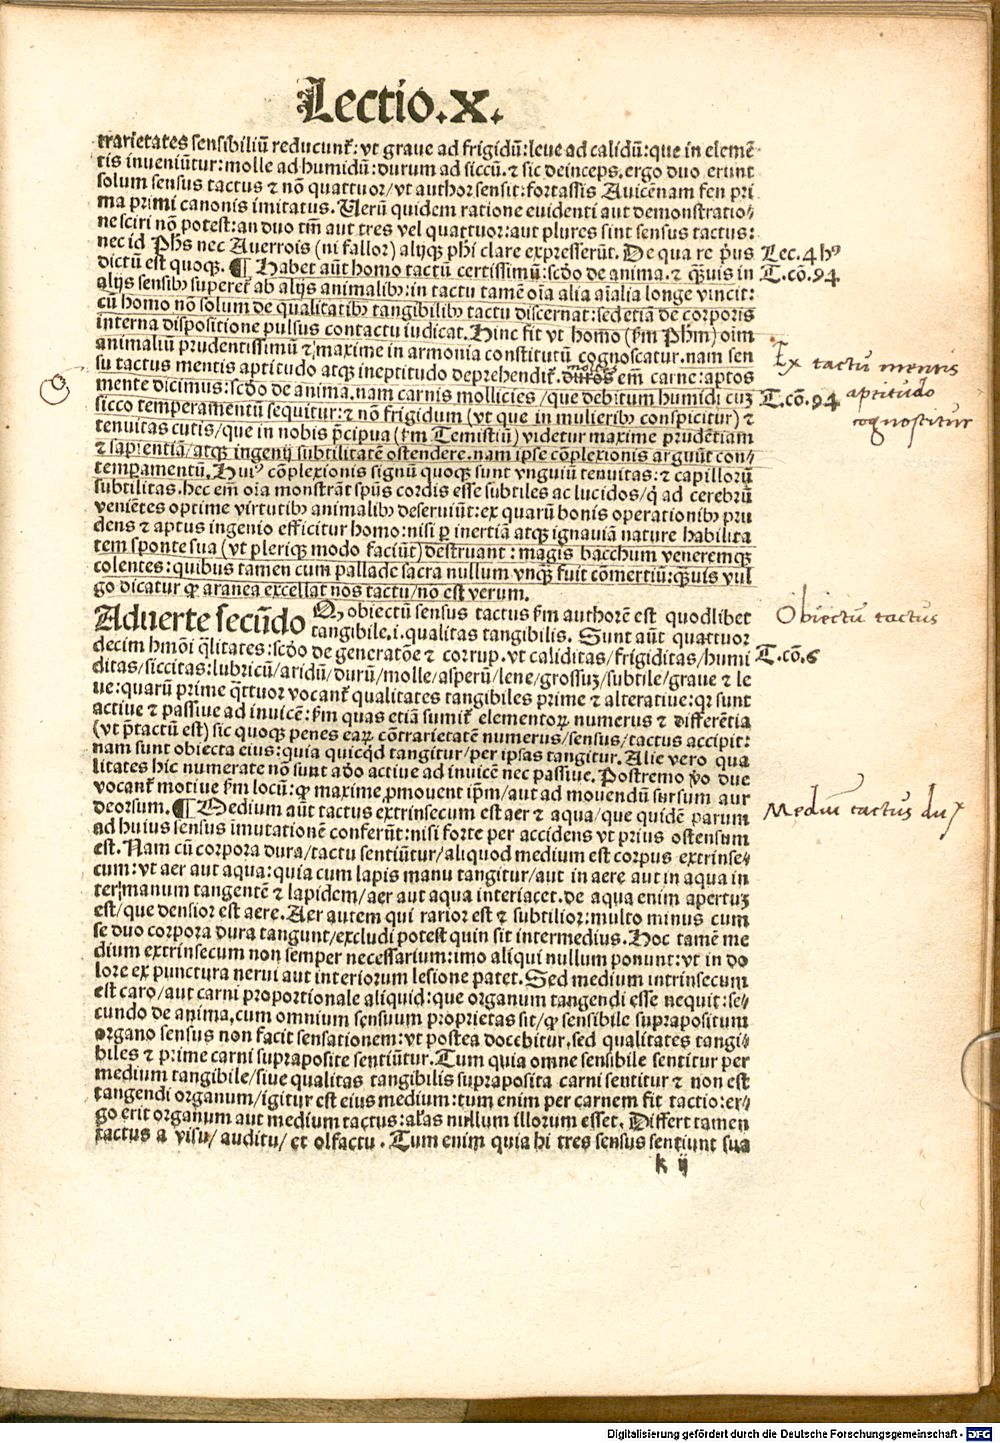 Lectio.X.
trarietates sensibiliū reducunt̃: vt graue ad frigidū: leue ad calidū: que in elemē
tis inueniūtur: molle ad humidū: durum ad siccū. ⁊ sic deinceps. ergo duo erunt
solum sensus tactus ⁊ nō quattuor/ vt author sensit: fortassis Auicēnam fen pri
ma primi canonis imitatus. Uerū quidem ratione euidenti aut demonstratio⸗
ne sciri nō potest: an duo tm̄ aut tres vel quattuor: aut plures sint sensus tactus:
nec id Phs nec Auerrois (ni fallor) alijqꝫ phi clare expresserūt. De qua re p̄us
Lec. 4 hꝰ
dictū est quoqꝫ. ¶ Habet aūt homo tactū certissimū: scd̄o de anima. ⁊ qꝫuis in
T.cō.94
alijs sensibꝫ superet̃ ab alijs animalibꝫ: in tactu tamē oīa alia aīalia longe vincit:
cū homo nō solum de qualitatibꝫ tangibilibꝫ tactu discernat: sed etiā de corporis
interna dispositione pulsus contactu iudicat. Hinc fit vt homo (ẜm Phm) oīm
animaliū prudentissimū ⁊ maxime in armonia constitutū cognoscatur. nam sen
Ex tactū mentis
su tactus mentis aptitudo atqꝫ ineptitudo deprehendit̃. duros em̄ carne: aptos
aptitudo
mente dicimus: scd̄o de anima. nam carnis mollicies/ que debitum humidi cuꝫ
T.cō.94
sicco temperamentū sequitur: ⁊ nō frigidum (vt que in mulieribꝫ conspicitur) ⁊
cognoscitur
tenuitas cutis/ que in nobis p̄cipua (ẜm Temistiū) videtur maxime prudētiam
⁊ sapientiā/ atqꝫ ingenij subtilitatē ostendere. nam ipse cōplexionis arguūt con⸗
temperamentū. Huiꝰ cōplexionis signū quoqꝫ sunt vnguiū tenuitas: ⁊ capillorū
subtilitas. hec em̄ oīa monstrāt spūs cordis esse subtiles ac lucidos/ q̇ ad cerebrū
veniētes optime virtutibꝫ animalibꝫ deseruiūt: ex quarū bonis operationibꝫ pru
dens ⁊ aptus ingenio efficitur homo: nisi ꝑ inertiā atqꝫ ignauiā nature habilita
tem sponte sua (vt pleriqꝫ modo faciūt) destruant: magis bacchum veneremqꝫ
colentes: quibus tamen cum pallade sacra nullum vnqꝫ̄ fuit cōmertiū: qꝫ̄uis vul
go dicatur ꝙ aranea excellat nos tactu/ nō est verum.
Aduerte secūdo Qꝫ obiectū sensus tactus ẜm authorē est quodlibet
Obiectū tactus
tangibile .i. qualitas tangibilis. Sunt aūt quattuor
decim hmōi q̄litates: scd̄o de generatōe ⁊ corrup. vt caliditas/ frigiditas/ humi
T.cō.6
ditas/ siccitas: lubricū/ aridū/ durū/ molle/ asperū/ lene/ grossuꝫ/ subtile/ graue ⁊ le
ue: quarū prime q̄ttuor vocant̃ qualitates tangibiles prime ⁊ alteratiue: qꝛ sunt
actiue ⁊ passiue ad inuicē: ẜm quas etiā sumit̃ elementoꝝ numerus ⁊ differētia
(vt p̄tactū est) sic quoqꝫ penes eaꝝ cōtrarietatē numerus/ sensus/ tactus accipit:
nam sunt obiecta eius: quia quicqd̄ tangitur/ per ipsas tangitur. Alie vero qua
litates hic numerate nō sunt adeo actiue ad inuicē nec passiue. Postremo ṽo due
vocant̃ motiue ẜm locū: ꝙ maxime ꝓmouent ip̄m/ aut ad mouendū sursum aut
deorsum. ¶ Medium aūt tactus extrinsecum est aer ⁊ aqua/ que quidē parum
Mediū tactus dup͛x
ad huius sensus imutationē conferūt: nisi forte per accidens vt prius ostensum
est. Nam cū corpora dura/ tactu sentiūtur/ aliquod medium est corpus extrinse⸗
cum: vt aer aut aqua: quia cum lapis manu tangitur/ aut in aere aut in aqua in
ter manum tangentē ⁊ lapidem/ aer aut aqua interiacet. de aqua enim apertuꝫ
est/ que densior est aere. Aer autem qui rarior est ⁊ subtilior: multo minus cum
se duo corpora dura tangunt/ excludi potest quin sit intermedius. Hoc tamē me
dium extrinsecum non semper necessarium: imo aliqui nullum ponunt: vt in do
lore ex punctura nerui aut interiorum lesione patet. Sed medium intrinsecum
est caro/ aut carni proportionale aliquid: que organum tangendi esse nequit: se⸗
cundo de anima, cum omnium sensuum proprietas sit/ ꝙ sensibile suprapositum
organo sensus non facit sensationem: vt postea docebitur. sed qualitates tangi⸗
biles ⁊ prime carni supraposite sentiūtur. Tum quia omne sensibile sentitur per
medium tangibile/ siue qualitas tangibilis supraposita carni sentitur ⁊ non est
tangendi organum/ igitur est eius medium: tum enim per carnem fit tactio: er⸗
go erit organum aut medium tactus: alās nullum illorum esset. Differt tamen
tactus a visu/ auditu/ et olfactu. Tum enim quia hi tres sensus sentiunt sua
k ij
Digitalisierung gefördert durch die Deutsche Forschungsgemeinschaft - DFG